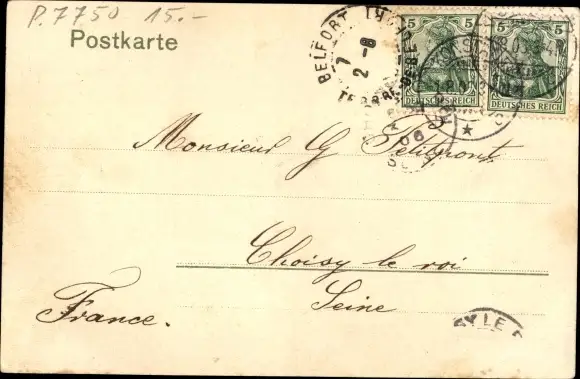 P. 7750 15.-
Postkarte
5 5
5 5
DEUTSCHES REICH
DEUTSCHES REICH
BELFORT
7
2-8
06
Monsieur G Petitmont
Choisy le roi
Seine
France.